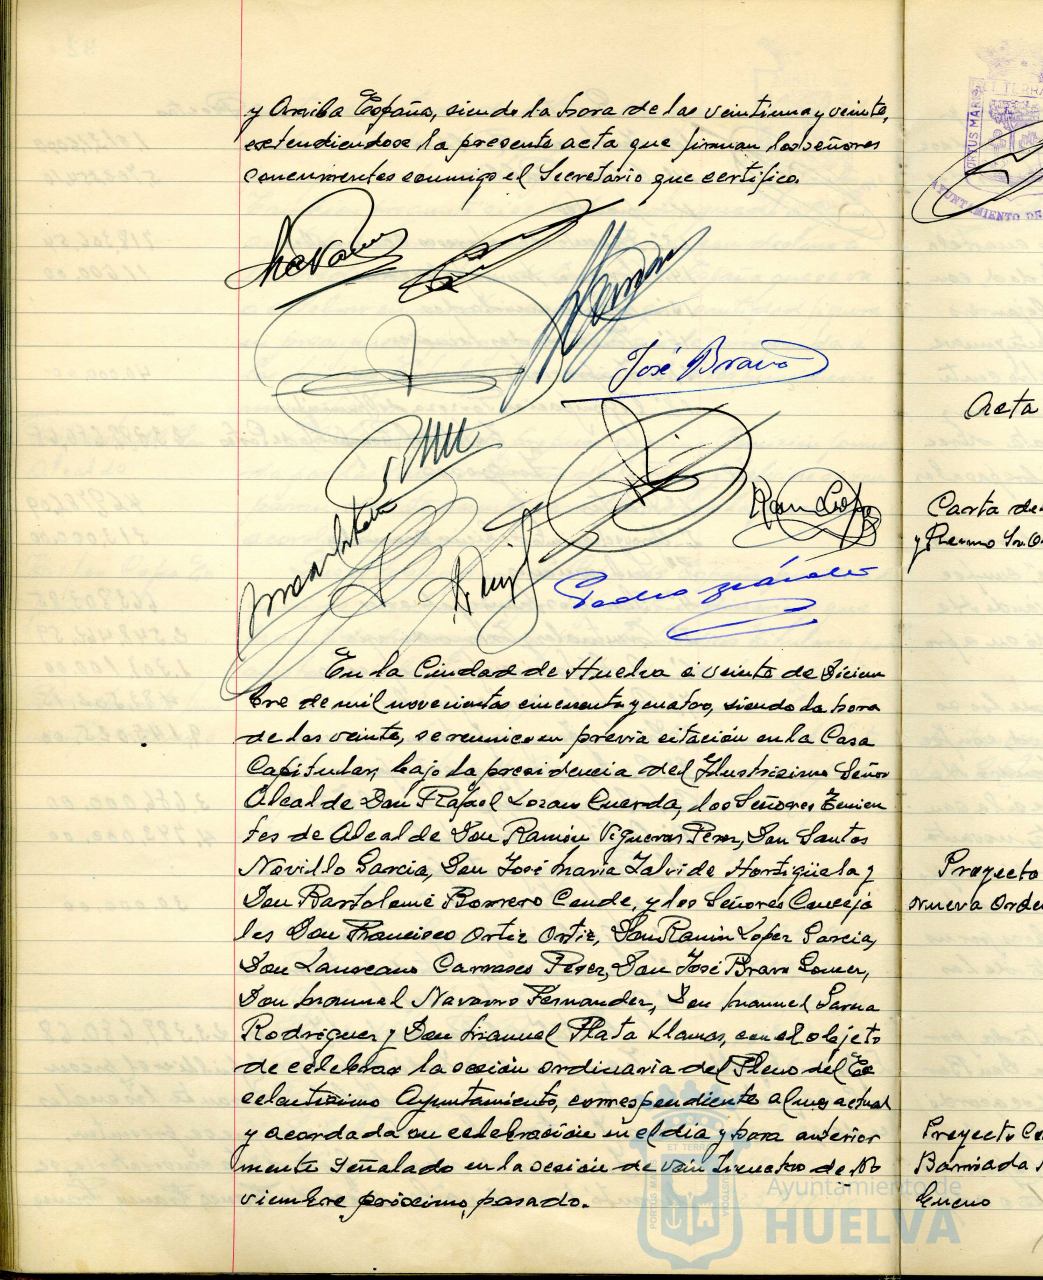 y Arriba España, siendo la hora de las veintiuna y veinte,
extendiendose la presente acta que firman los señores
concurrentes conmigo el Secretario que certifico.
José Bravo
Pedro
En la Ciudad de Huelva a veinte de Diciem
bre de mil novecientos cincuenta y cuatro, siendo la hora
de las veinte, se reunieron previa citación en la Casa
Capitular, bajo la presidencia del Ilustrisimo Señor
Alcalde Don Rafael Lozano Cuerda, los Señores Tenien
tes de Alcalde Don Ramón Vigueras Perez, Don Santos
Novillo Garcia, Don José Maria Zalvide Hortigüela y
Don Bartolomé Borrero Conde, y los Señores Conceja
les Don Francisco Ortiz Ortiz, Don Ramón Lopez Garcia,
Don Laureano Carrasco Perez, Don José Bravo Gomez,
Don Manuel Navarro Fernandez, Don Manuel
Rodriguez y Don Manuel Plata Llamas, con el objeto
de celebrar la sesión ordinaria del Pleno del Ex
celentisimo Ayuntamiento, correspondiente al mes actual
y acordada su celebración en el dia y hora anterior
mente señalado en la sesión de de No
viembre próximo pasado.
AYUNTAMIENTO DE
Acta
Carta de
Proyecto
nueva Orde
Proyecto
Barriada
Ayuntamiento de
HUELVA